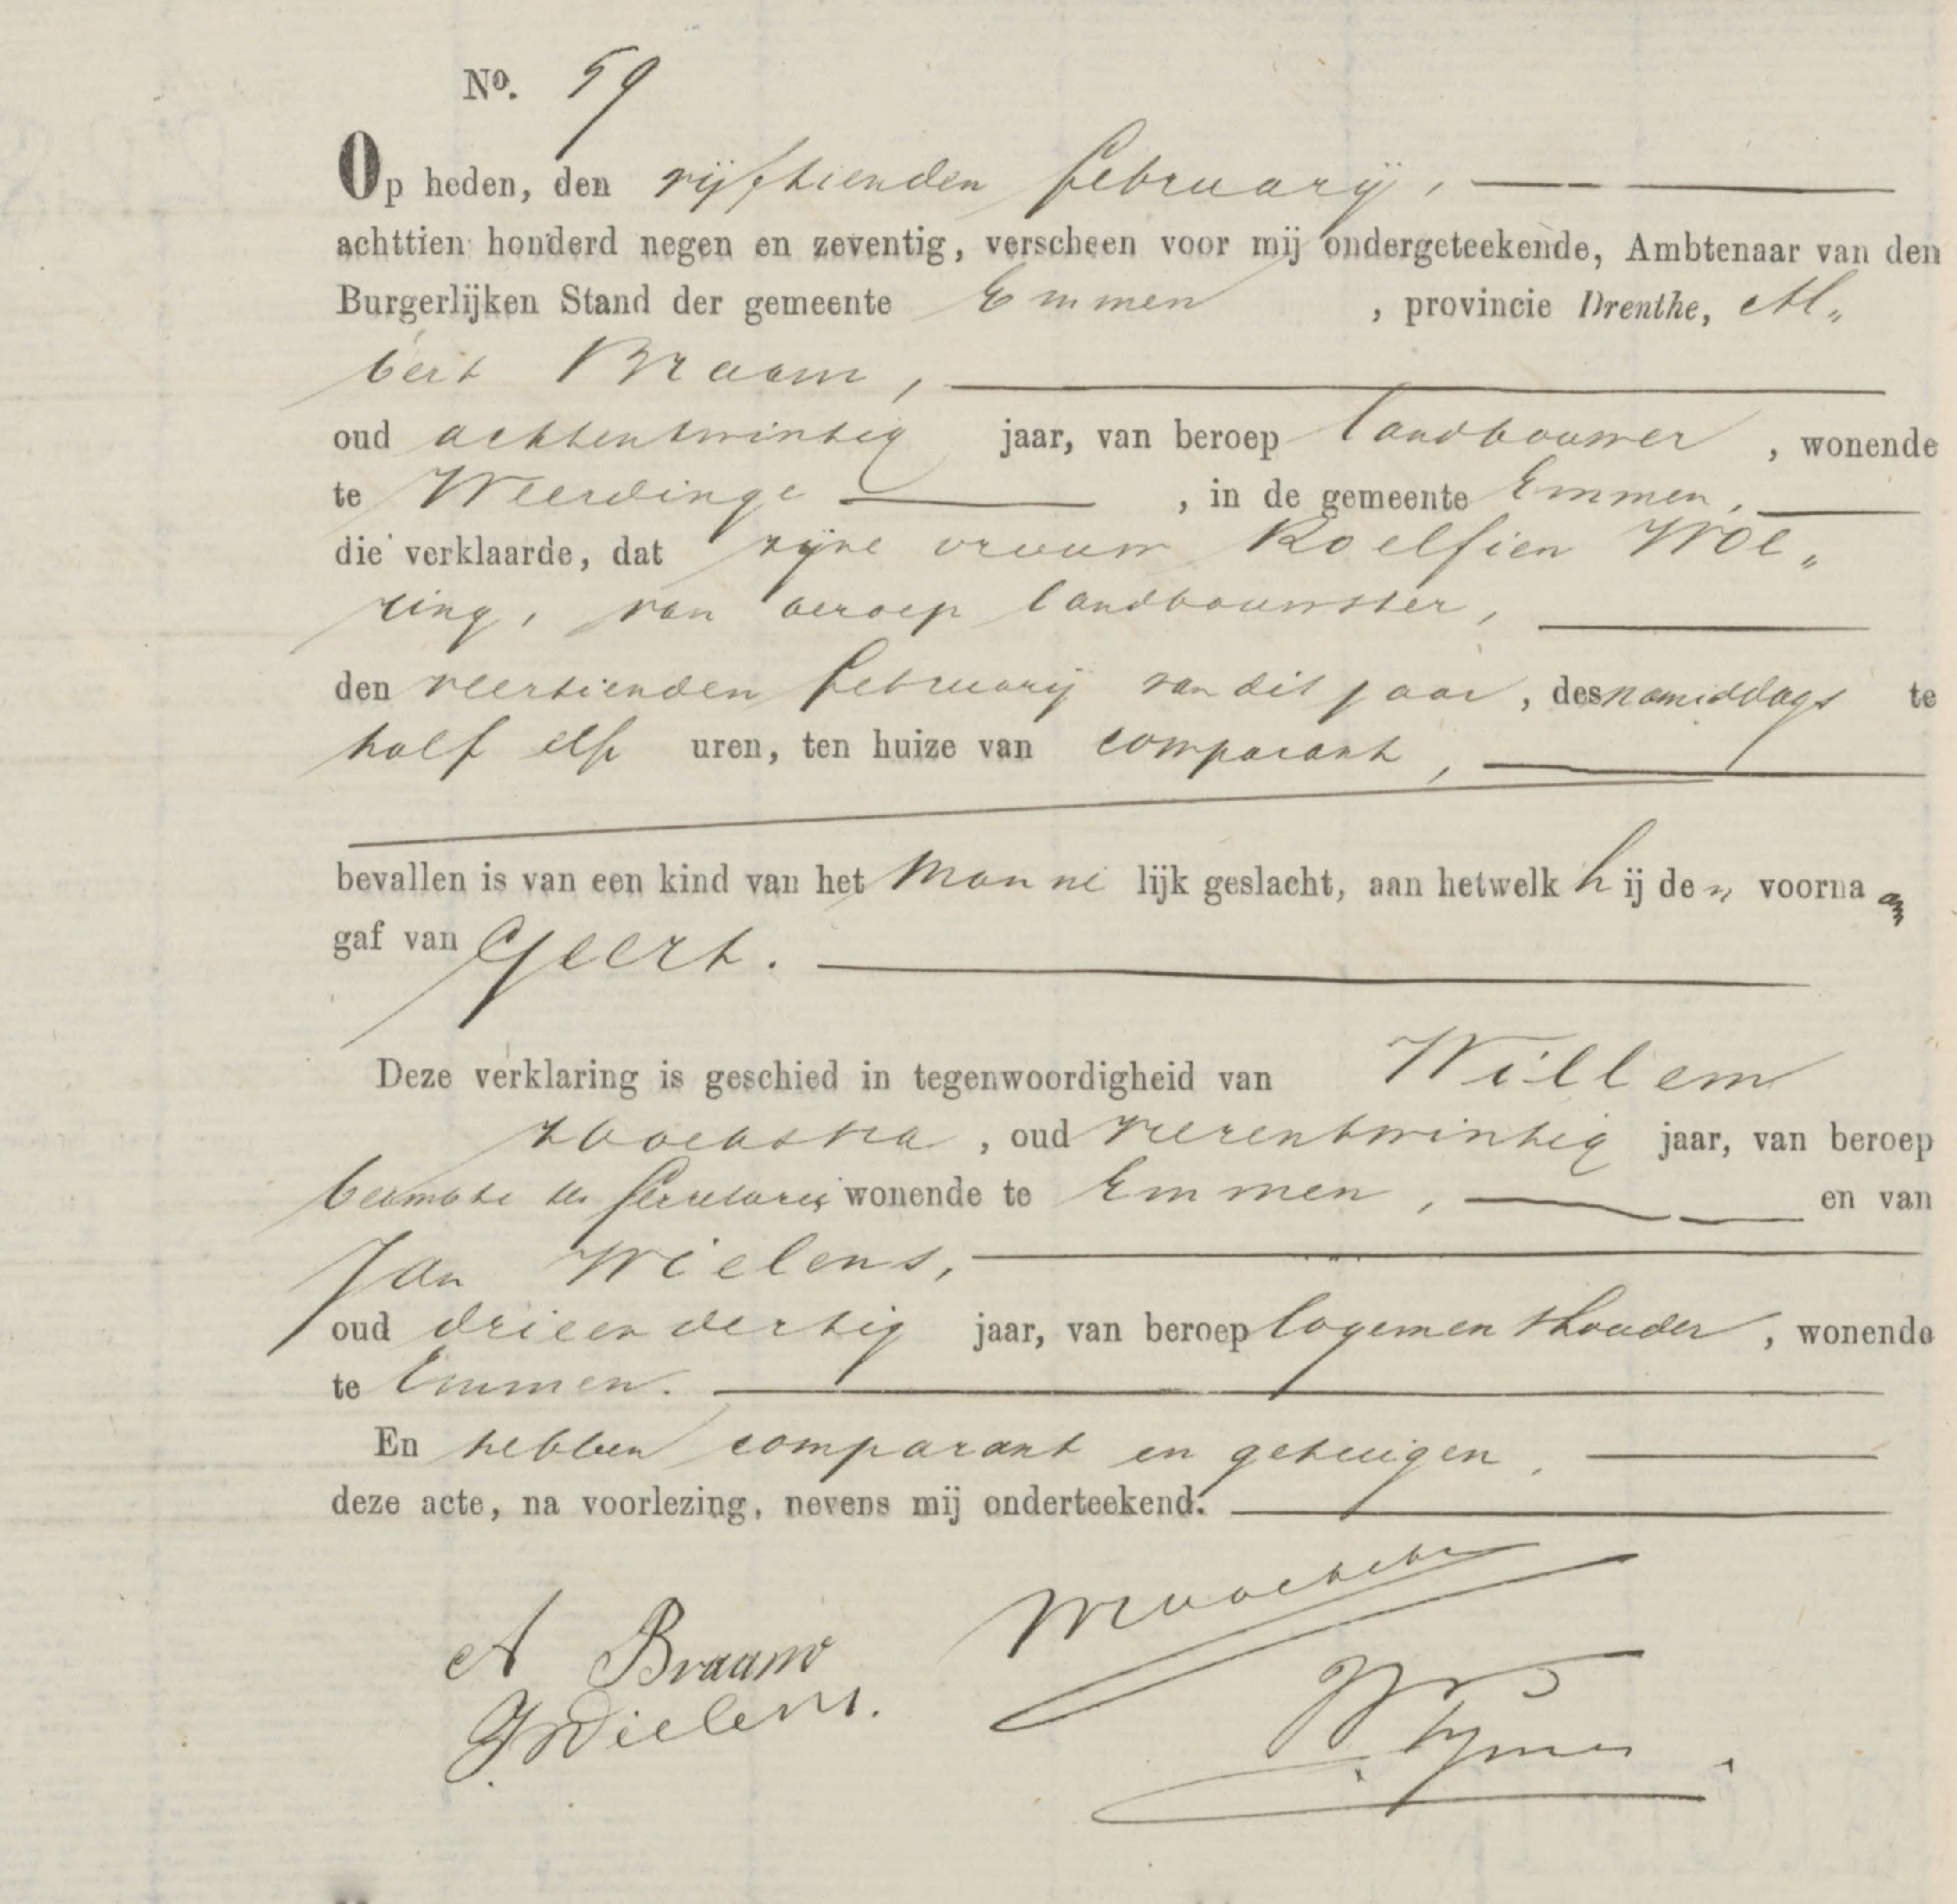 No. 59
Op heden, den vijftienden february,
achttien honderd negen en zeventig, verscheen voor mij ondergeteekende, Ambtenaar van den
Burgerlijken Stand der gemeente Emmen, provincie Drenthe, Al„
bert Braam,
oud achtentwintig jaar, van beroep landbouwer, wonende
te Weerdinge, in de gemeente Emmen,
die verklaarde, dat zijne vrouw Roelfien Wol„
zing, van beroep landbouwster,
den veertienden february van dit jaar, des namiddags te
half elf uren, ten huize van comparant,
bevallen is van een kind van het Manne lijk geslacht, aan hetwelk h ij de n voorna am
gaf van Geert.
Deze verklaring is geschied in tegenwoordigheid van Willem
, oud vierentwintig jaar, van beroep
beambte ter secretarij wonende te Emmen, en van
Jan Wielens,
oud drieendertig jaar, van beroep logementhouder, wonende
te Emmen.
En hebben comparant en getuigen,
deze acte, na voorlezing, nevens mij onderteekend.
A Braam
JWielens.